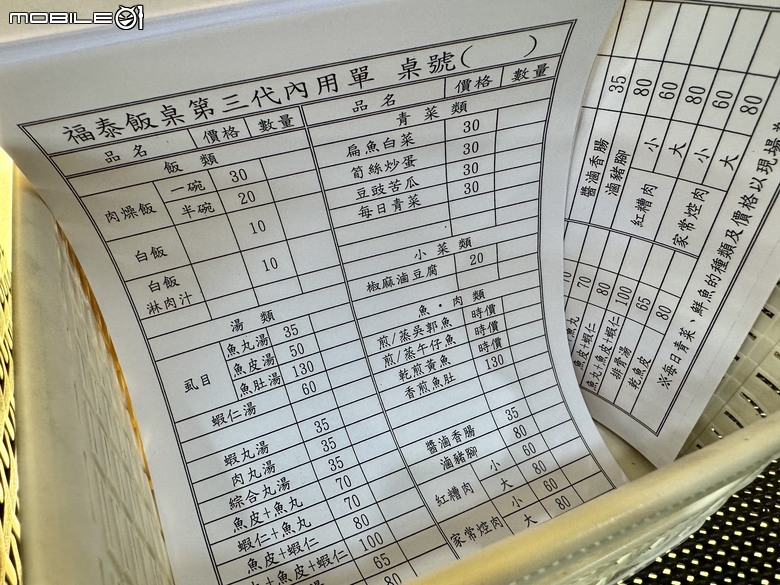 MOBILE01
福泰飯桌第三代內用單 桌號( )
品名 價格 數量
飯類
肉燥飯 一碗 30
半碗 20
白飯 10
白飯淋肉汁 10
湯類
虱目 魚丸湯 35
魚皮湯 50
魚肚湯 130
蝦仁湯 60
蝦丸湯 35
肉丸湯 35
綜合丸湯 35
魚皮+魚丸 70
蝦仁+魚丸 70
魚皮+蝦仁 80
+魚皮+蝦仁 100
65
80
品名 價格 數量
青菜類
扁魚白菜 30
筍絲炒蛋 30
豆豉苦瓜 30
每日青菜
小菜類
椒麻滷豆腐 20
魚・肉類
煎/蒸吳郭魚 時價
煎/蒸午仔魚 時價
乾煎黃魚 時價
香煎魚肚 130
醬滷香腸 35
滷豬腳 80
紅糟肉 小 60
大 80
家常焢肉 小 60
大 80
醬滷香腸 35
滷豬腳 80
紅糟肉 小 60
大 80
家常焢肉 小 60
大 80
70
魚皮+蝦仁 80
魚丸+魚皮+蝦仁 100
排骨湯 65
乾魚皮 80
※每日青菜、鮮魚的種類及價格以現場